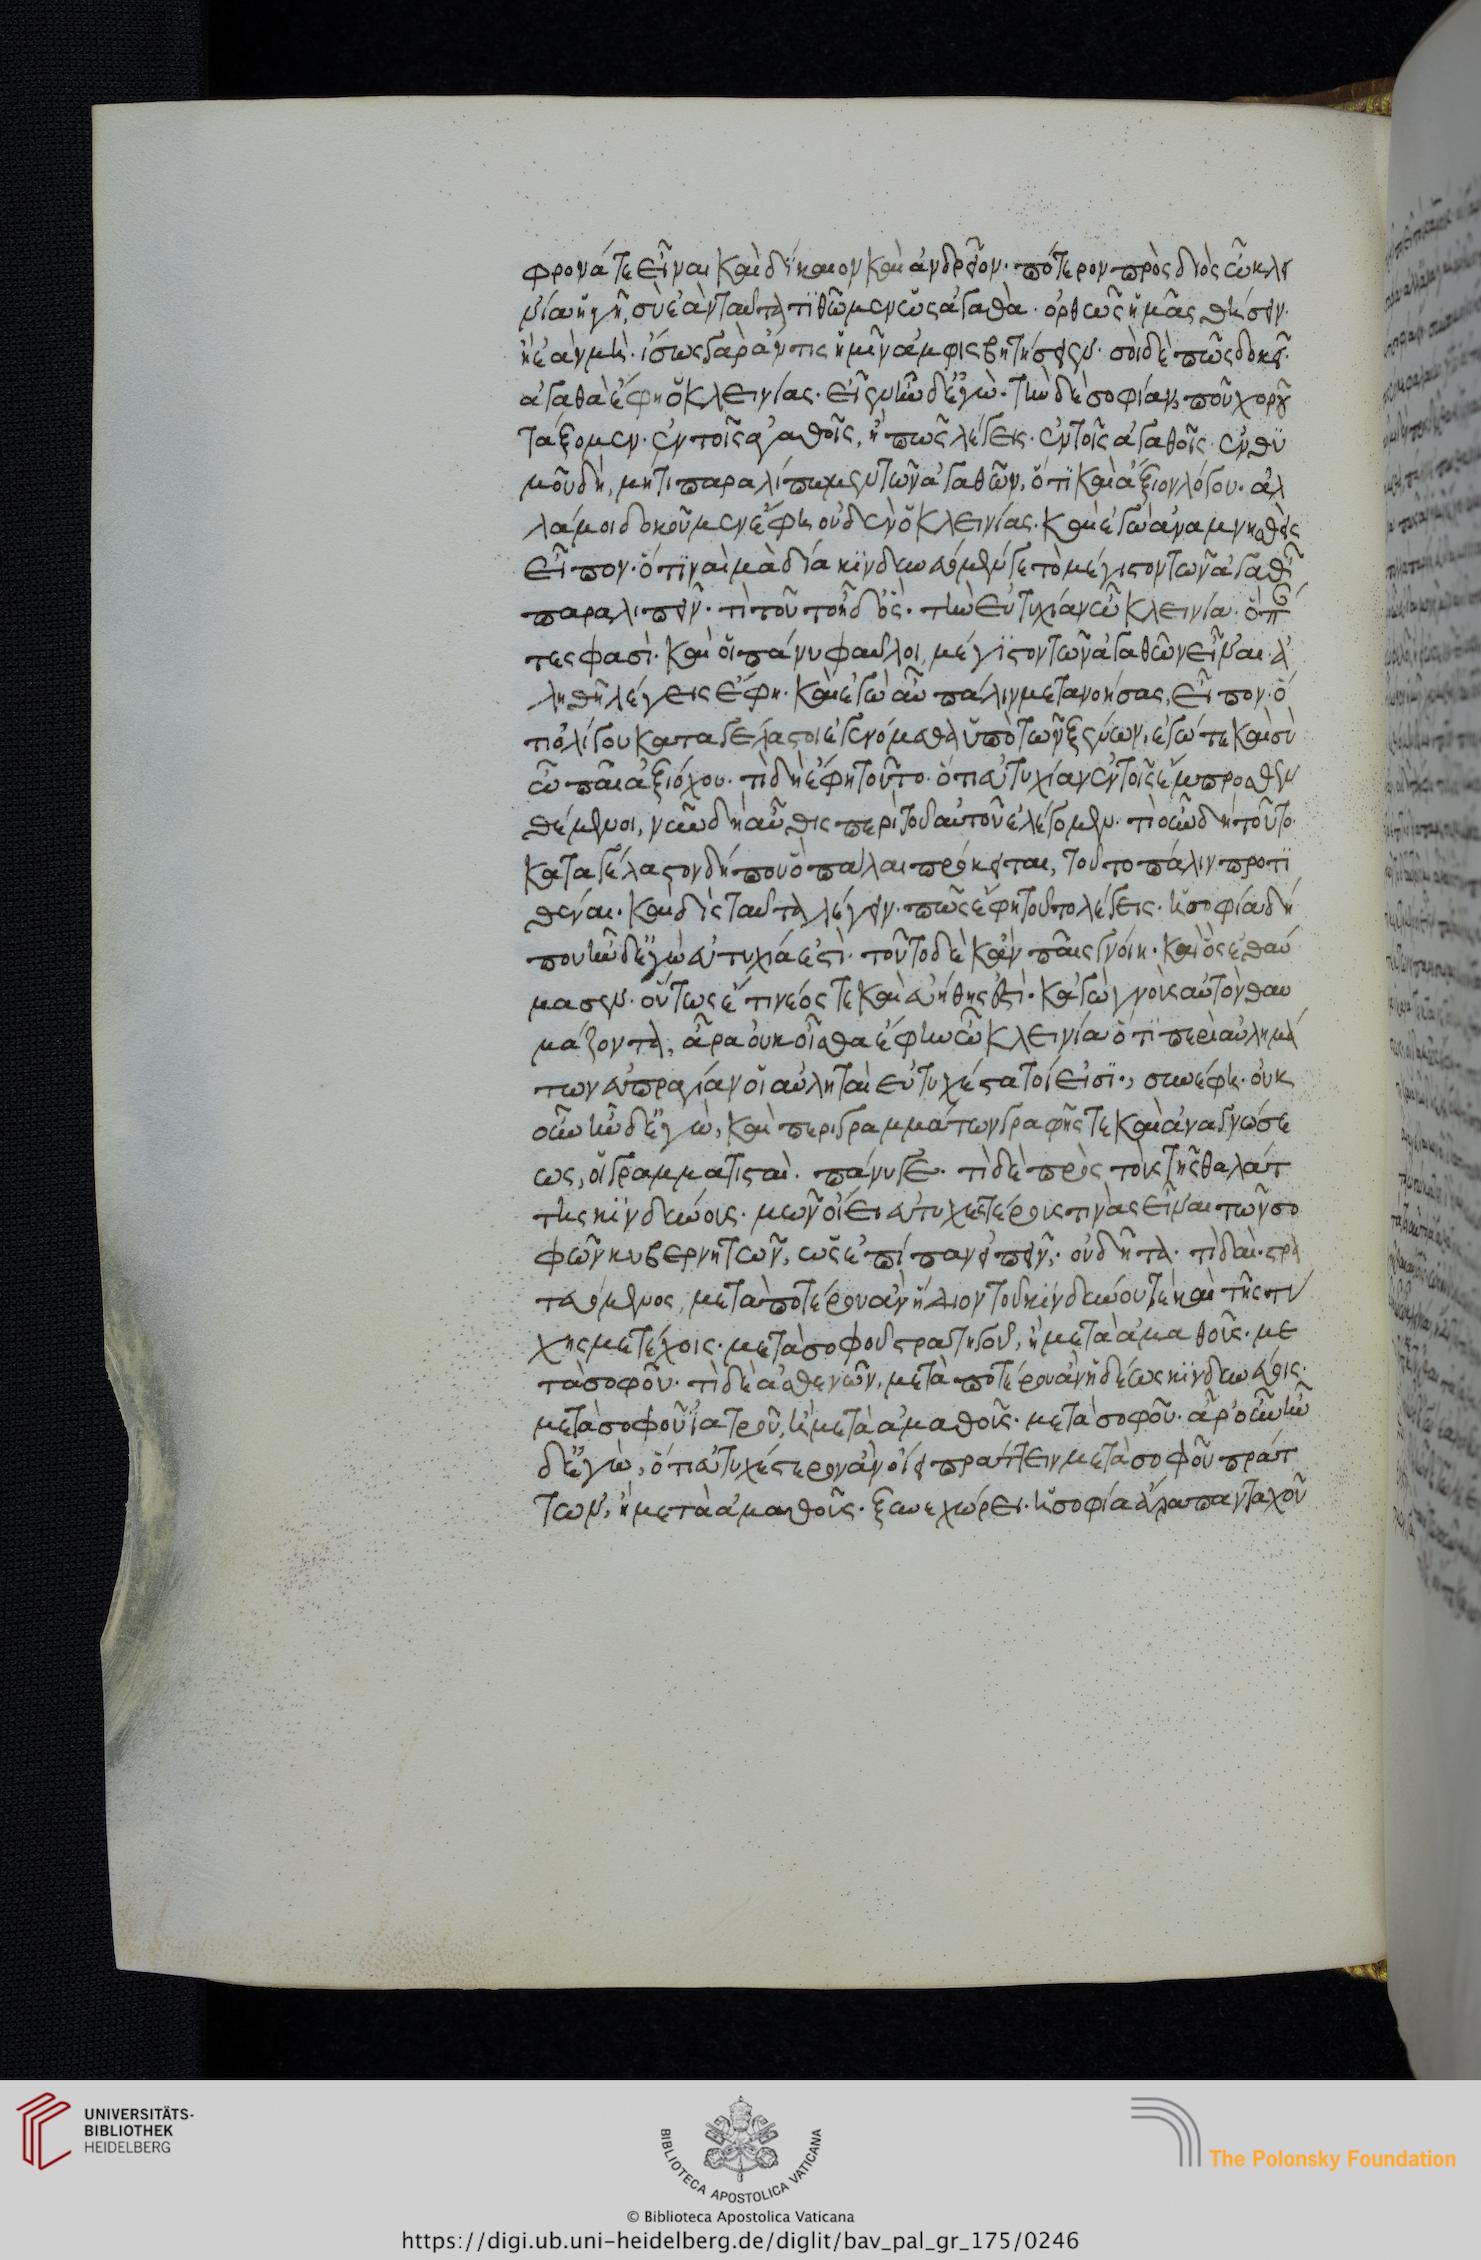 φρονά τε εἶναι καὶ δίκαιον καὶ ἀνδρεῖον· πότερον πρὸς διὸς ὦ κλει
νία ἡγῇ, σὺ ἐὰν ταῦτα τιθῶμεν ὡς ἀγαθὰ· ὀρθῶς ἡμᾶς θήσειν·
ἢ ἐὰν μή· ἴσως γὰρ ἄν τις ἡμῖν ἀμφισβητήσειεν· σοὶ δὲ πῶς δοκεῖ·
ἀγαθὰ ἔφη ὁ Κλεινίας· εἶεν ἦν δ' ἐγώ· τὴν δὲ σοφίαν ποῦ χοροῦ
τάξομεν· ἐν τοῖς ἀγαθοῖς, ἢ πῶς λέγεις· ἐν τοῖς ἀγαθοῖς· ἐνθυ
μοῦ δή, μή τι παραλίπωμεν τῶν ἀγαθῶν, ὅ τι καὶ ἄξιον λόγου· ἀλ
λά μοι δοκοῦμεν ἔφη οὐδὲν ὁ Κλεινίας· καὶ ἐγὼ ἀναμνησθεὶς
εἶπον· ὅτι ναὶ μὰ δία κινδυνεύομέν γε τὸ μέγιστον τῶν ἀγαθῶν
παραλιπεῖν· τί τοῦτο ἦ δ' ὅς· τὴν εὐτυχίαν ὦ Κλεινία· ὃ πάν
τες φασὶ· καὶ οἱ πάνυ φαῦλοι, μέγιστον τῶν ἀγαθῶν εἶναι· ἀ
ληθῆ λέγεις ἔφη· καὶ ἐγὼ αὖ πάλιν μετανοήσας, εἶπον· ὅ
τι ὀλίγου καταγέλαστοι ἐγενόμεθα ὑπὸ τῶν ξένων, ἐγώ τε καὶ σὺ
ὦ παῖ ἀξιόχου· τί δὴ ἔφη τοῦτο· ὅτι εὐτυχίαν ἐν τοῖς ἔμπροσθεν
θέμενοι, νῦν δὴ αὖθις περὶ τοῦ αὐτοῦ ἐλέγομεν· τί οὖν δὴ τοῦτο·
καταγέλαστον δήπου ὃ πάλαι πρόκειται, τοῦτο πάλιν προτι
θέναι· καὶ δὶς ταῦτα λέγειν· πῶς ἔφη τοῦτο λέγεις· ἡ σοφία δή
που ἦν δ' ἐγὼ εὐτυχία ἐστί· τοῦτο δὲ κἂν παῖς γνοίη· καὶ ὃς ἐθαύ
μασεν· οὕτως ἔτι νέος τε καὶ εὐήθης ἐστί· κἀγὼ γνοὺς αὐτὸν θαυ
μάζοντα, ἆρα οὐκ οἶσθα ἔφην ὦ Κλεινία ὅτι περὶ αὐλημά
των εὐπραγίαν οἱ αὐληταὶ εὐτυχέστατοί εἰσι·, συνέφη· οὐκ
οὖν ἦν δ' ἐγώ, καὶ περὶ γραμμάτων γραφῆς τε καὶ ἀναγνώσε
ως, οἱ γραμματισταί· πάνυ γε· τί δὲ πρὸς τοὺς τῆς θαλάτ
της κινδύνους· μῶν οἴει εὐτυχεστέρους τινὰς εἶναι τῶν σο
φῶν κυβερνητῶν, ὡς ἐπίπαν εἰπεῖν· οὐ δῆτα· τί δαί· στρα
τευόμενος, μετὰ ποτέρου ἂν ἥδιον τοῦ κινδύνου τε καὶ τῆς τύ
χης μετέχοις· μετὰ σοφοῦ στρατηγοῦ, ἢ μετὰ ἀμαθοῦς· με
τὰ σοφοῦ· τί δὲ ἀσθενῶν, μετὰ ποτέρου ἂν ἡδέως κινδυνεύοις·
μετὰ σοφοῦ ἰατροῦ, ἢ μετὰ ἀμαθοῦς· μετὰ σοφοῦ· ἆρ' οὖν ἦν
δ' ἐγώ, ὅτι εὐτυχέστερον ἂν οἴει πράττειν μετὰ σοφοῦ πράτ
των, ἢ μετὰ ἀμαθοῦς· ξυνεχώρει· ἡ σοφία ἄρα πανταχοῦ
UNIVERSITÄTS-
BIBLIOTHEK
HEIDELBERG
BIBLIOTECA APOSTOLICA VATICANA
The Polonsky Foundation
© Biblioteca Apostolica Vaticana
https://digi.ub.uni-heidelberg.de/diglit/bav_pal_gr_175/0246